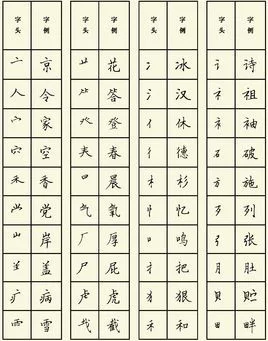 字头 字例 字头 字例 字头 字例 字头 字例
亠 京 艹 花 冫 冰 讠 诗
人 令 𥫗 答 氵 汉 礻 祖
宀 家 癶 登 亻 休 衤 袖
穴 空 𡗗 春 彳 德 石 破
禾 香 日 晨 木 杉 方 施
党 气 氧 忄 忆 歹 列
山 岸 厂 厚 口 鸣 弓 张
盖 尸 屁 扌 把 月 肚
疒 病 虍 虎 犭 狠 贝 贮
雨 雪 𢦏 截 禾 和 田 畔